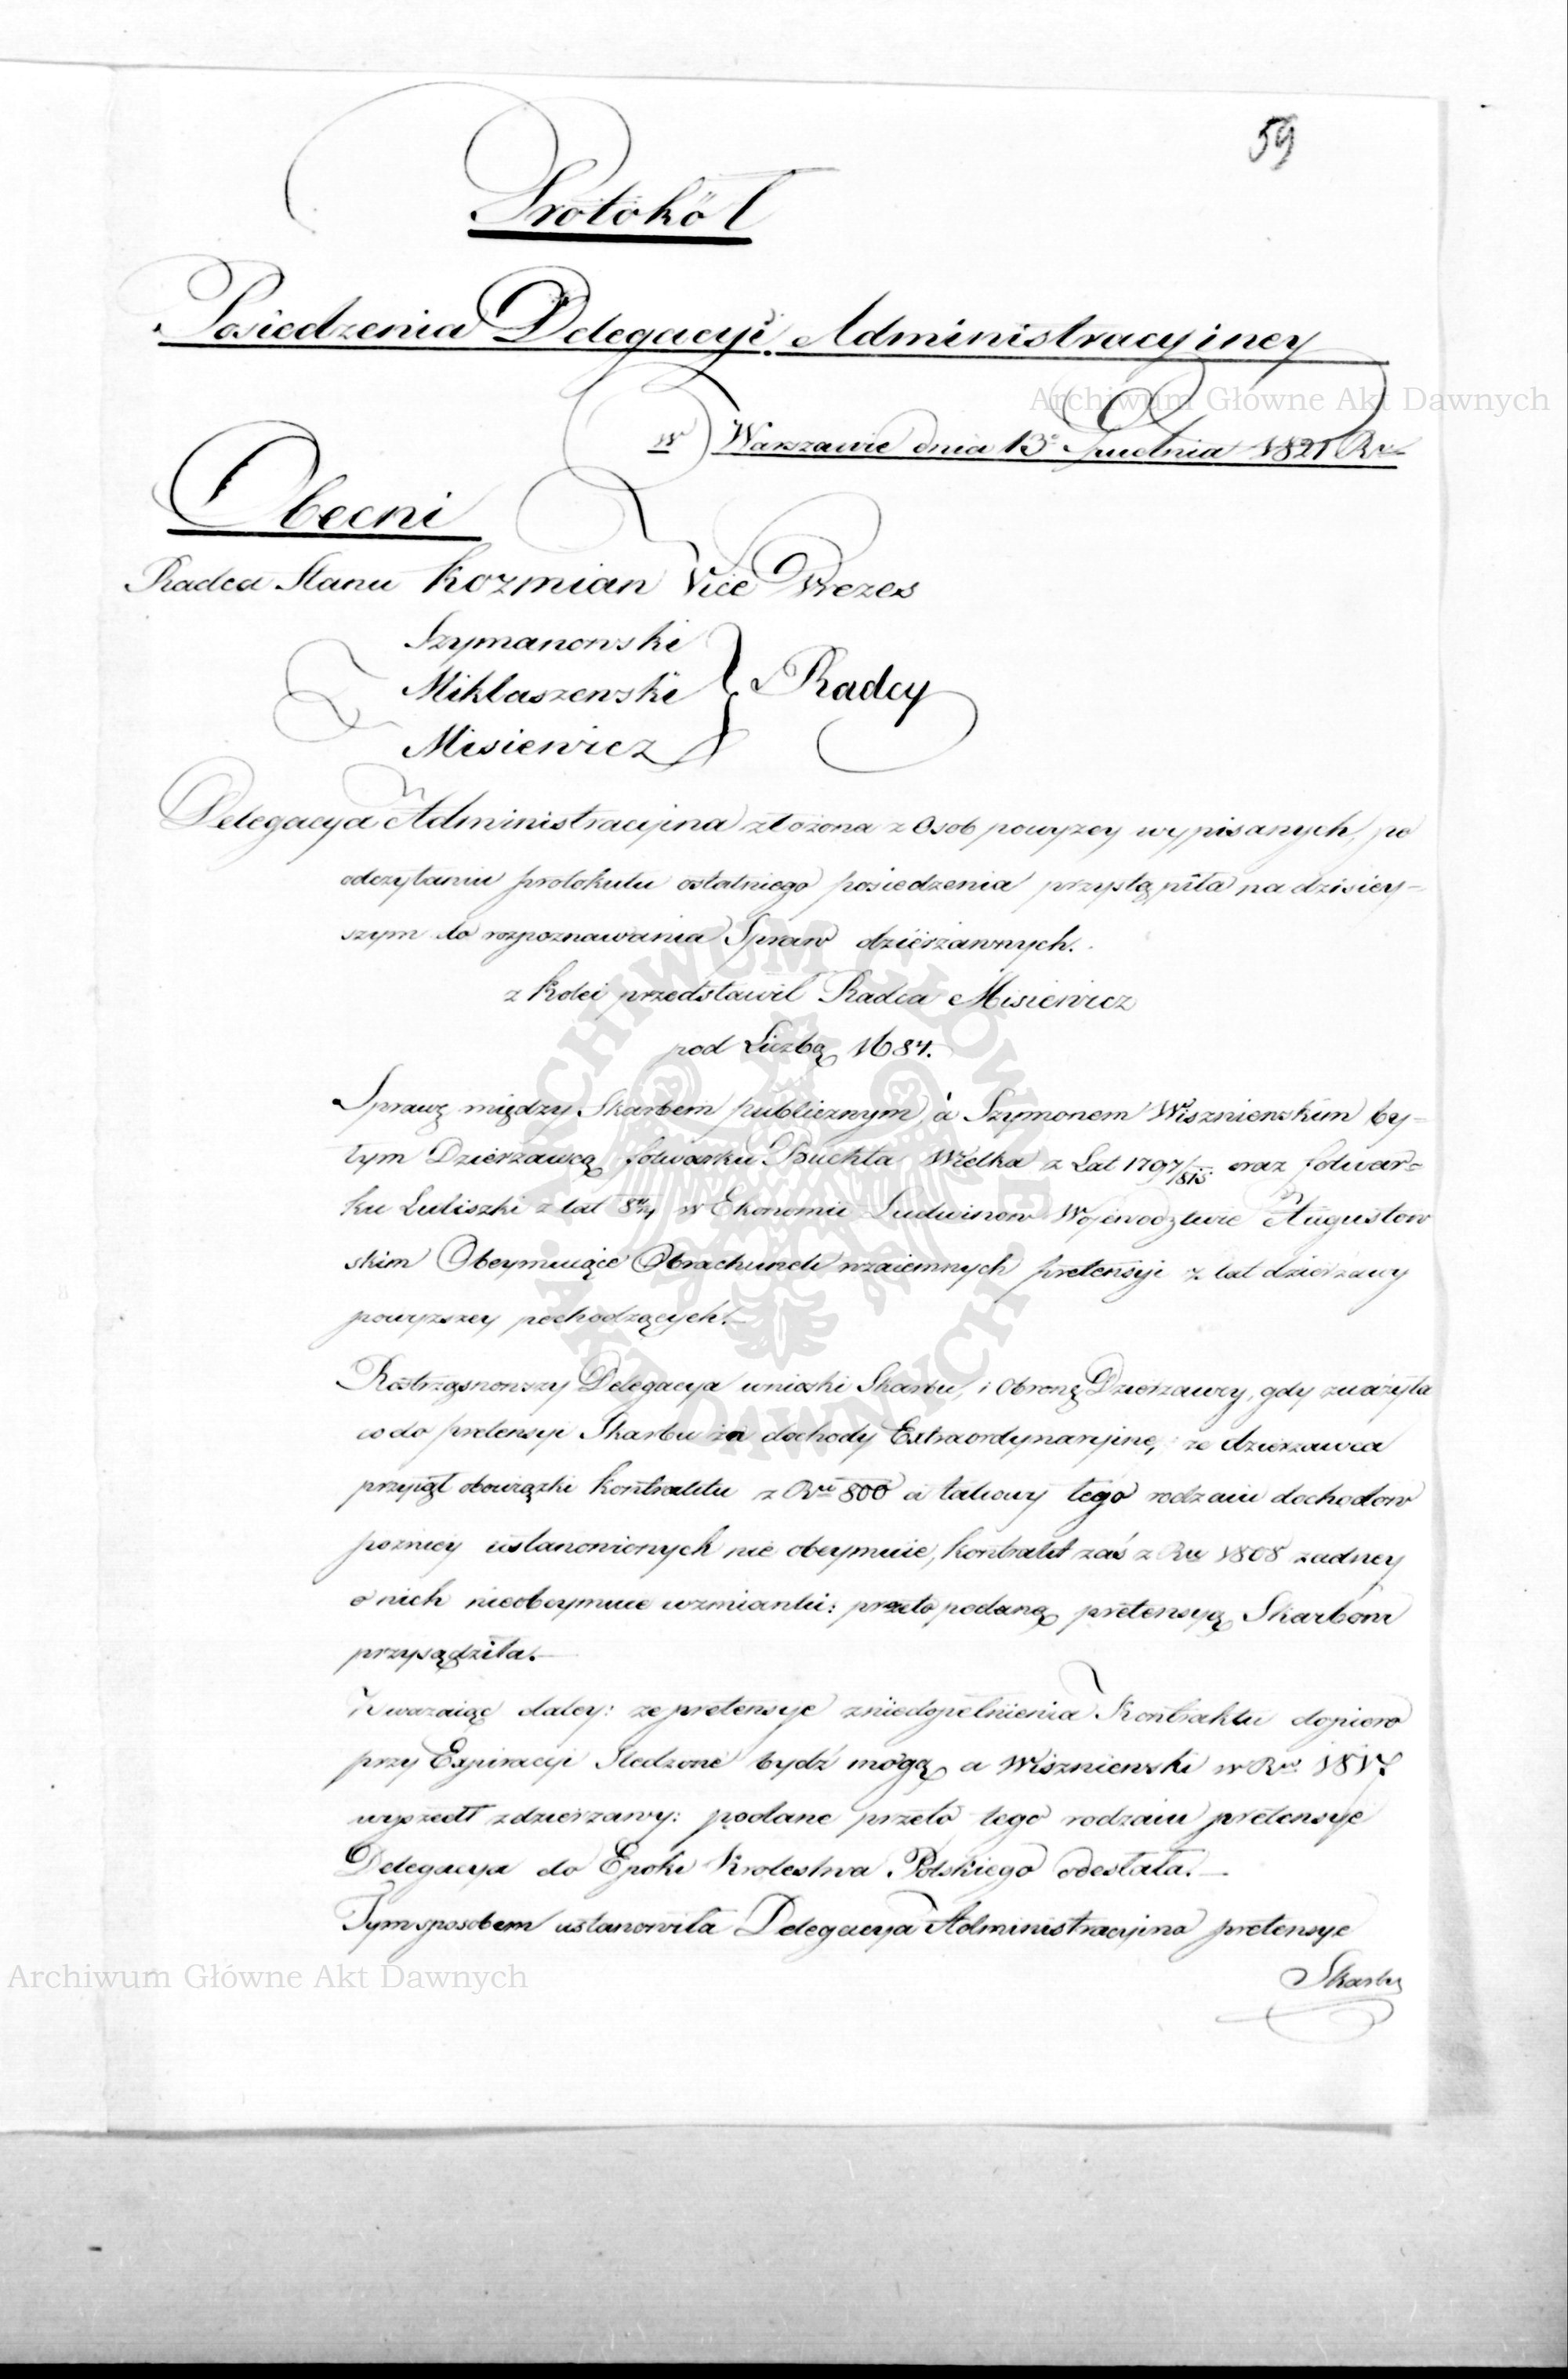 59
Protokół
Posiedzenia Delegacyi Administracyiney
w Warszawie dnia 13° Grudnia 1821 Ru
Obecni
Radca Stanu Kozmian Vice Prezes
Szymanowski
Miklaszewski } Radcy
Misiewicz
Delegacya Administracyjna złożona z Osob powyżey wypisanych, po
odczytaniu protokułu ostatniego posiedzenia przystąpiła na dzisiey-
szym do rozpoznawania Spraw dzierżawnych.
z Kolei przedstawił Radca Misiewicz
pod Liczbą 1684.
Sprawę między Skarbem publicznym, a Szymonem Wiszniewskim by-
łym Dzierżawcą folwarku Buchta Wielka z Lat 1797/815 oraz folwar-
ku Luliszki z lat w Ekonomii Ludwinow Wojewodztwie Augustow
skim Obeymuiące Obrachunek wzaiemnych pretensyi z lat dzierżawy
powyższey pochodzących.
Roztrząsnowszy Delegacya wnioski Skarbu, i Obronę Dzierżawcy, gdy zważyła
co do pretensyi Skarbu za dochody Extraordynaryine, że dzierzawca
przyiął obowiązki kontraktu z Ru 800 a takowy tego rodzaiu dochodow
pozniey ustanowionych nie obeymuie, kontrakt zaś z Ru 1808 zadney
o nich nieobeymuie wzmianki: przeto podaną pretensyą Skarbowi
przysądziła.
Zwazaiąc daley: ze pretensye z niedopełnienia Kontraktu dopiero
przy Expiracyi śledzone bydź mogą a Wiszniewski w Ru
wyszedł z dzierżawy: podane przeto tego rodzaiu pretensye
Delegacya do Epoki Krolestwa Polskiego odesłała.
Tym sposobem ustanowiła Delegacya Administracyjna pretensye
Skarbu
Archiwum Główne Akt Dawnych
Archiwum Główne Akt Dawnych
ARCHIWUM GŁÓWNE AKT DAWNYCH